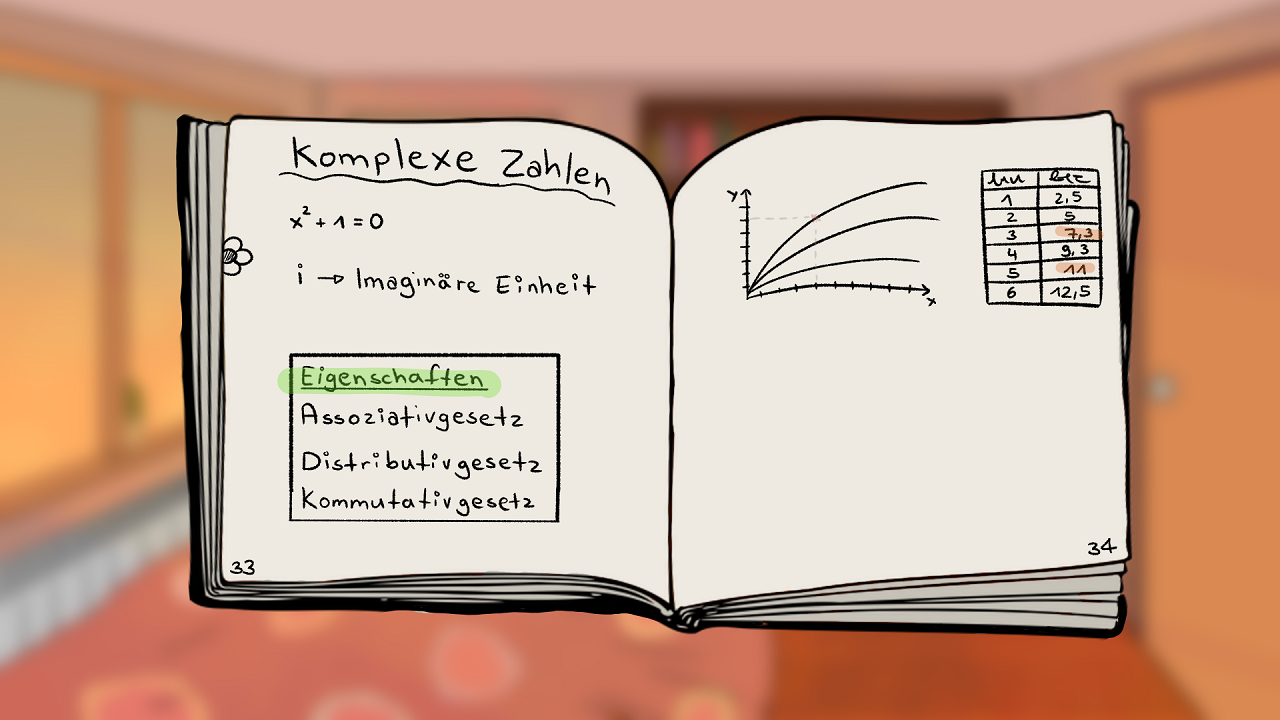 Komplexe Zahlen
x² + 1 = 0
i → Imaginäre Einheit
Eigenschaften
Assoziativgesetz
Distributivgesetz
Kommutativgesetz
33
y
x
1 2,5
2 5
3 7,3
4 9,3
5 11
6 12,5
34